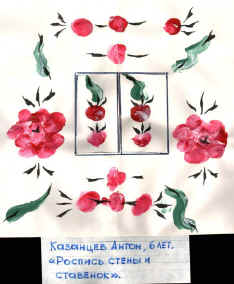 Казанцев Антон, 6 лет.
«Роспись стены и
ставенок».